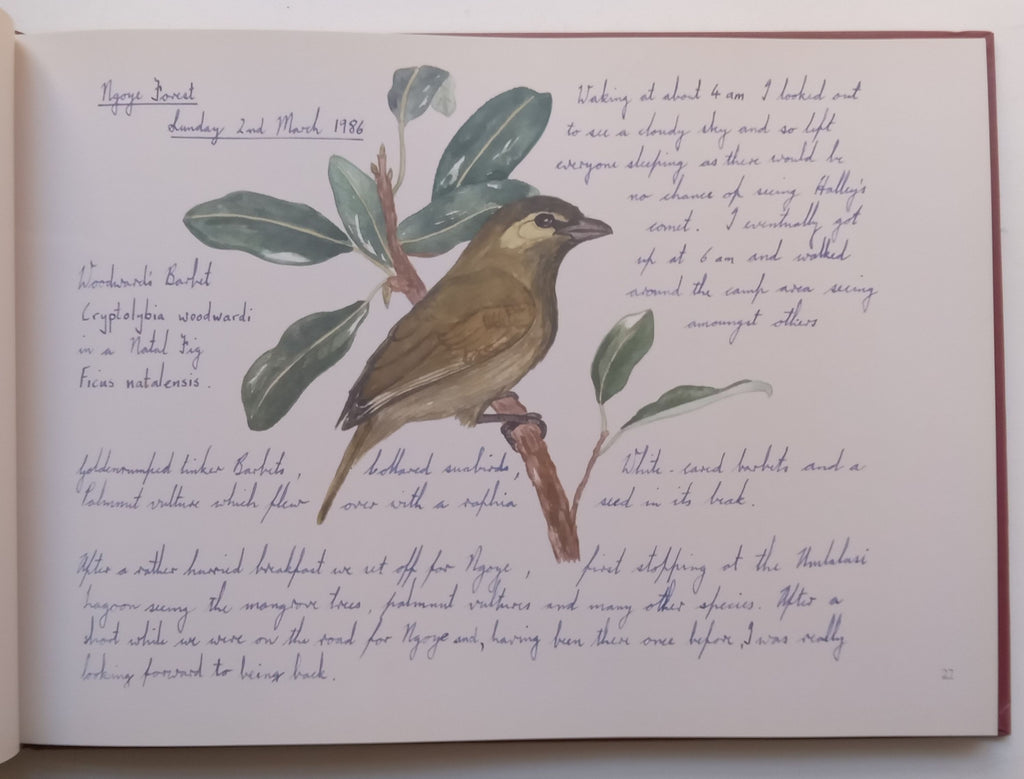 Ngoye Forest
Sunday 2nd March 1986
Waking at about 4 am I looked out
to see a cloudy sky and so left
everyone sleeping as there would be
no chance of seeing Halley's
comet. I eventually got
up at 6 am and walked
around the camp area seeing
amoungst others
Woodwards Barbet
Cryptolybia woodwardi
in a Natal Fig
Ficus natalensis.
Goldenrumped tinker Barbets, collared sunbirds, White-eared barbets and a
Palmnut vulture which flew over with a raphia seed in its beak.
After a rather hurried breakfast we set off for Ngoye, first stopping at the Umlalasi
lagoon seeing the mangrove trees, palmnut vultures and many other species. After a
short while we were on the road for Ngoye and, having been there once before, I was really
looking forward to being back.
22